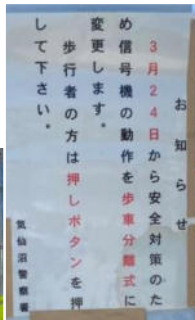 お知らせ
３月２４日から安全対策のた
め信号機の動作を歩車分離式に
変更します。
歩行者の方は押しボタンを押
して下さい。
気仙沼警察署